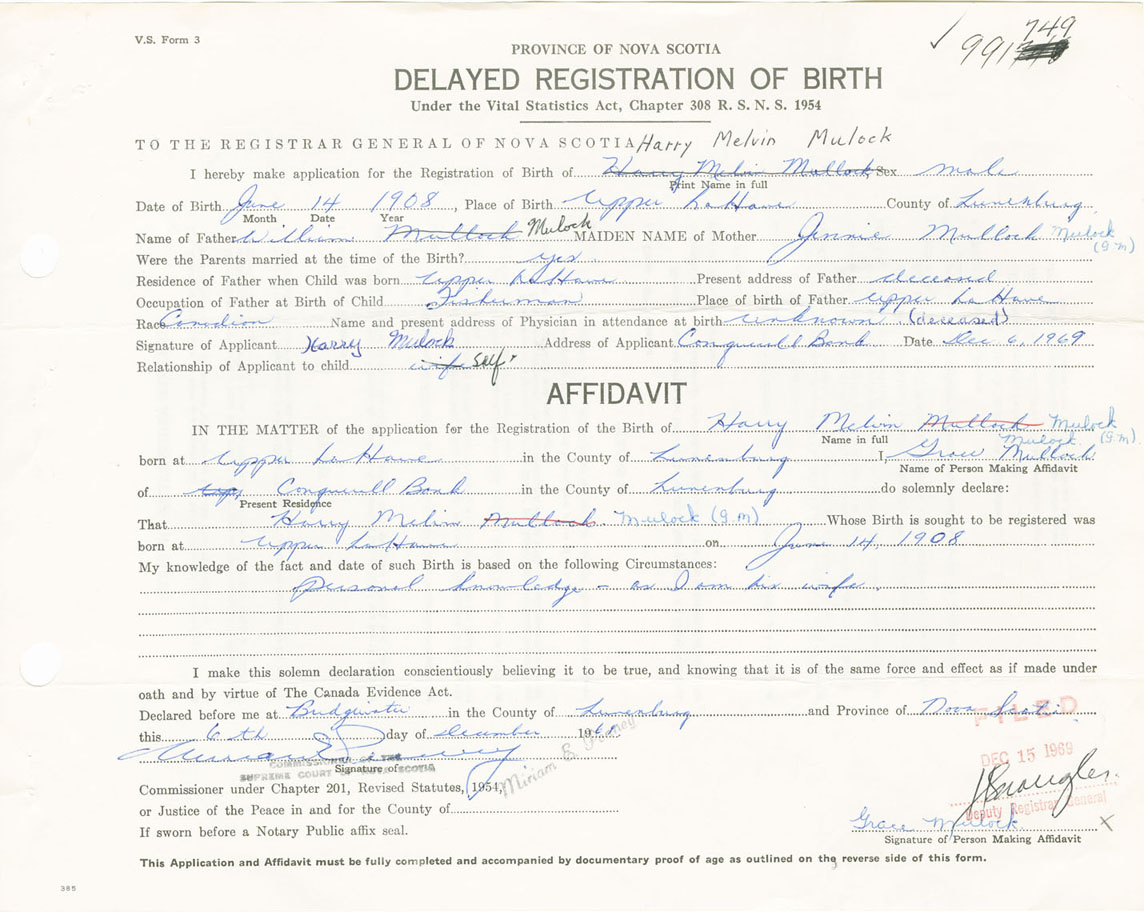 V.S. Form 3
749
991
PROVINCE OF NOVA SCOTIA
DELAYED REGISTRATION OF BIRTH
Under the Vital Statistics Act, Chapter 308 R. S. N. S. 1954
TO THE REGISTRAR GENERAL OF NOVA SCOTIA Harry Melvin Mulock
I hereby make application for the Registration of Birth of Harry Melvin Mullock Sex male
Print Name in full
Date of Birth June 14 1908, Place of Birth Upper LaHave County of Lunenburg
Month Date Year
Name of Father William Mullock Mulock MAIDEN NAME of Mother Jennie Mullock Mulock
(g.m)
Were the Parents married at the time of the Birth? yes
Residence of Father when Child was born Upper LaHave Present address of Father deceased
Occupation of Father at Birth of Child Fisherman Place of birth of Father Upper LaHave
Race Canadian Name and present address of Physician in attendance at birth unknown (deceased)
Signature of Applicant Harry Mulock Address of Applicant Conquerall Bank Date Dec 6, 1969
Relationship of Applicant to child wife Self
AFFIDAVIT
IN THE MATTER of the application for the Registration of the Birth of Harry Melvin Mullock Mulock
Name in full Mulock (g.m)
born at Upper LaHave in the County of Lunenburg I, Grace Mullock
Name of Person Making Affidavit
of Conquerall Bank in the County of Lunenburg do solemnly declare:
Present Residence
That Harry Melvin Mullock Mulock (g.m) Whose Birth is sought to be registered was
born at Upper LaHave on June 14, 1908
My knowledge of the fact and date of such Birth is based on the following Circumstances:
personal knowledge - as I am his wife.
I make this solemn declaration conscientiously believing it to be true, and knowing that it is of the same force and effect as if made under
oath and by virtue of The Canada Evidence Act.
Declared before me at Bridgewater in the County of Lunenburg and Province of Nova Scotia
FILED
this 6th day of December 1969
DEC 15 1969
COMMISSIONER OF THE
SUPREME COURT OF NOVA SCOTIA
Signature of
Miriam E
Commissioner under Chapter 201, Revised Statutes, 1954,
Deputy Registrar General
or Justice of the Peace in and for the County of
Grace Mullock X
If sworn before a Notary Public affix seal.
Signature of Person Making Affidavit
This Application and Affidavit must be fully completed and accompanied by documentary proof of age as outlined on the reverse side of this form.
385